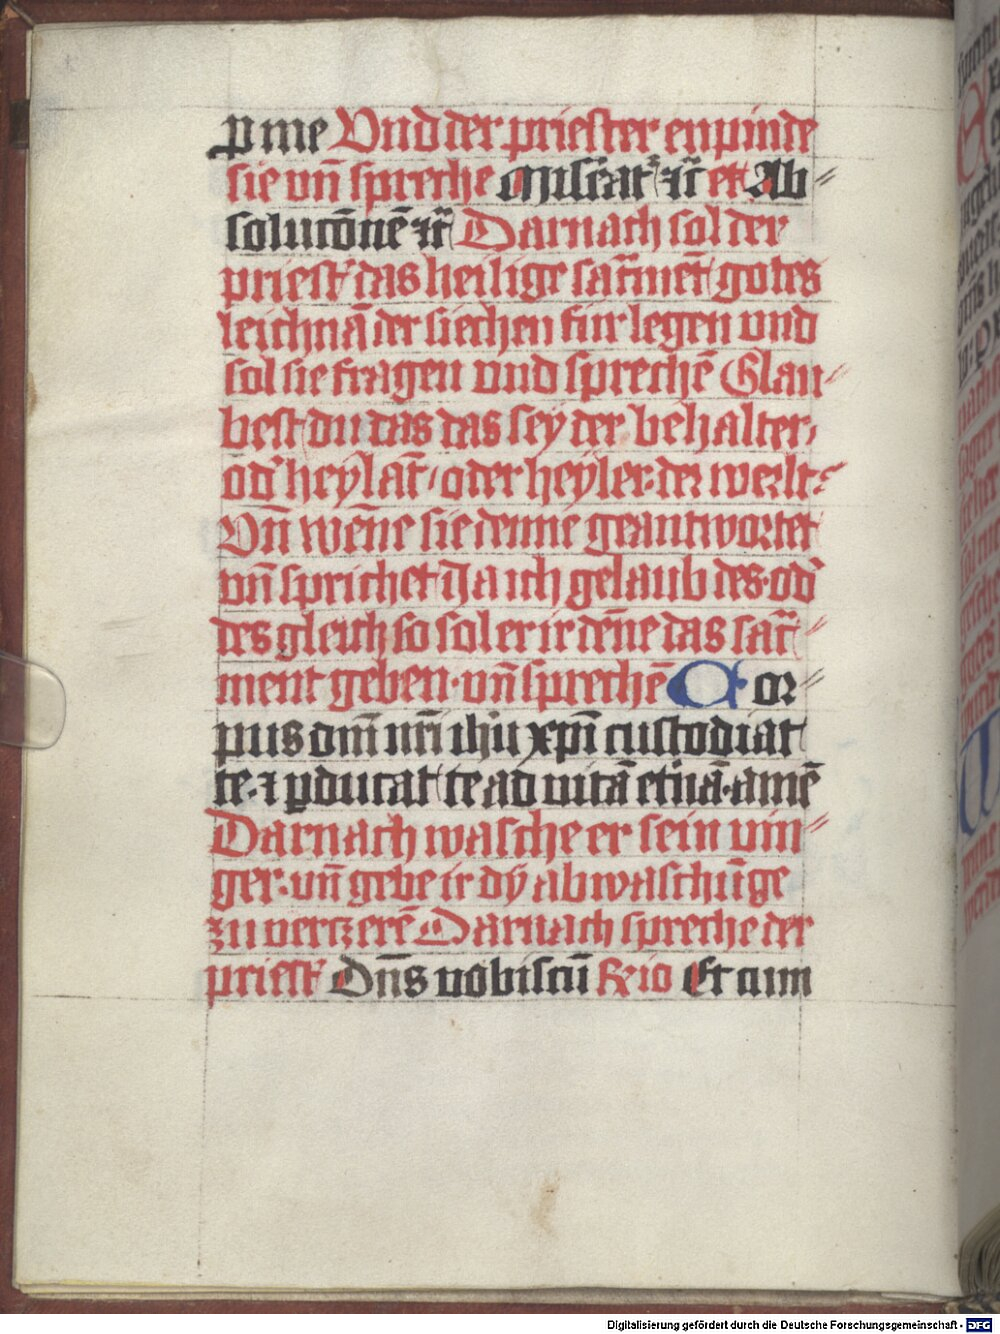 ꝓ me Vnd der priester enpinde
sie vn̄ spreche Misēat᷑ ⁊c̄ et Ab⸗
solucōnē ⁊c̄ Darnach sol der
priest᷑ das heilige sac̄met᷑ gotes
leichnā der siechen fur legen vnd
sol sie fragen vnd sprechē Glau⸗
best du das das sey der behalter,
od᷑ heylāt / oter heyler der werlt
Vn̄ wēne sie denne geantwortet
vn̄ sprichet Ja ich gelaub des · od᷑
des gleich so sol er ir dēne das sac̄⸗
ment geben · vn̄ sprechē Cor⸗
pus dm̄ nr̄i ihū xp̄i custodiat
te · ⁊ ꝑducat te ad vitā et̄nā · amē
Darnach wasche er sein vin⸗
ger · vn̄ gebe ir dy abwaschūge
zu vertzerē Darnach spreche der
priest᷑ Dn̄s vobiscū R̄io Et cum
Digitalisierung gefördert durch die Deutsche Forschungsgemeinschaft - DFG